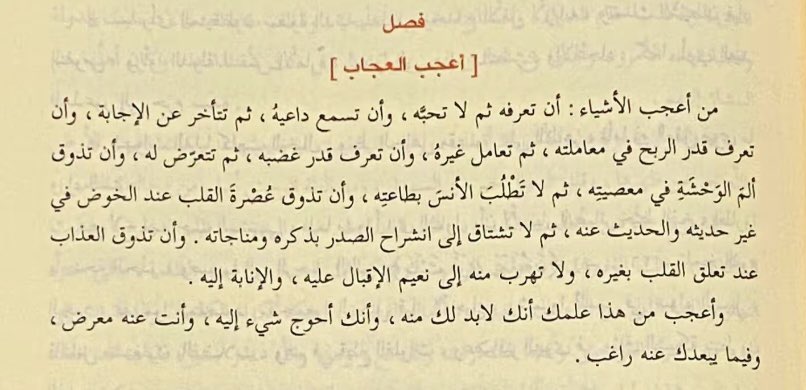 فصل
[ أعجب العجاب ]
من أعجب الأشياء : أن تعرفه ثم لا تحبَّه ، وأن تسمع داعيهُ ، ثم تتأخر عن الإجابة ، وأن
تعرف قدر الربح في معاملته ، ثم تعامل غيرهُ ، وأن تعرف قدر غضبه ، ثم تتعرّض له ، وأن تذوق
ألمَ الوَحْشَةِ في معصيتِه ، ثم لا تَطْلُبَ الأنسَ بطاعتِه ، وأن تذوق عُصْرَةَ القلب عند الخوض في
غير حديثه والحديث عنه ، ثم لا تشتاق إلى انشراح الصدر بذكره ومناجاته . وأن تذوق العذاب
عند تعلق القلب بغيره ، ولا تهرب منه إلى نعيم الإقبال عليه ، والإنابة إليه .
وأعجب من هذا علمك أنك لابد لك منه ، وأنك أحوج شيء إليه ، وأنت عنه معرض ،
وفيما يبعدك عنه راغب .